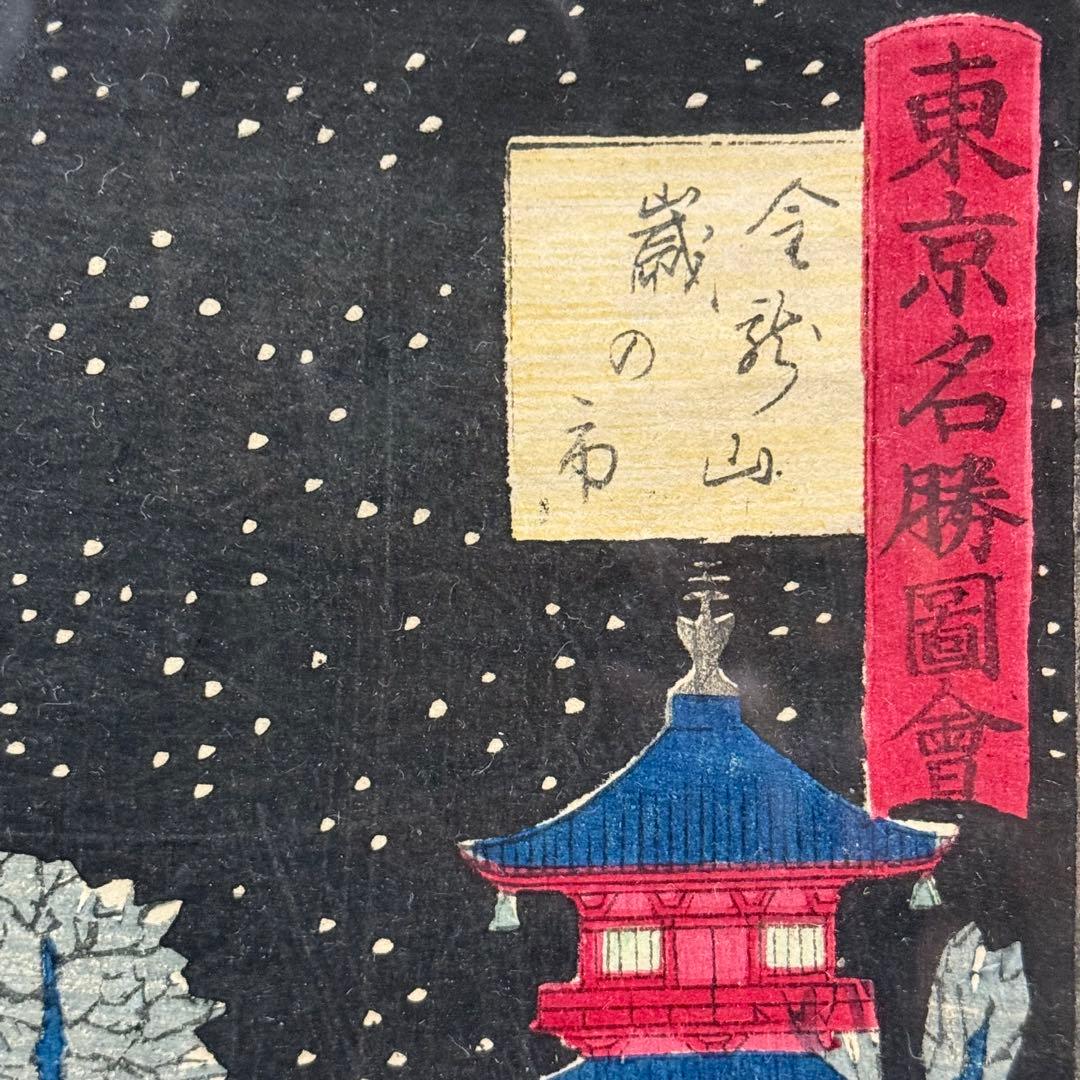 東京名勝圖會
金龍山
歳の市